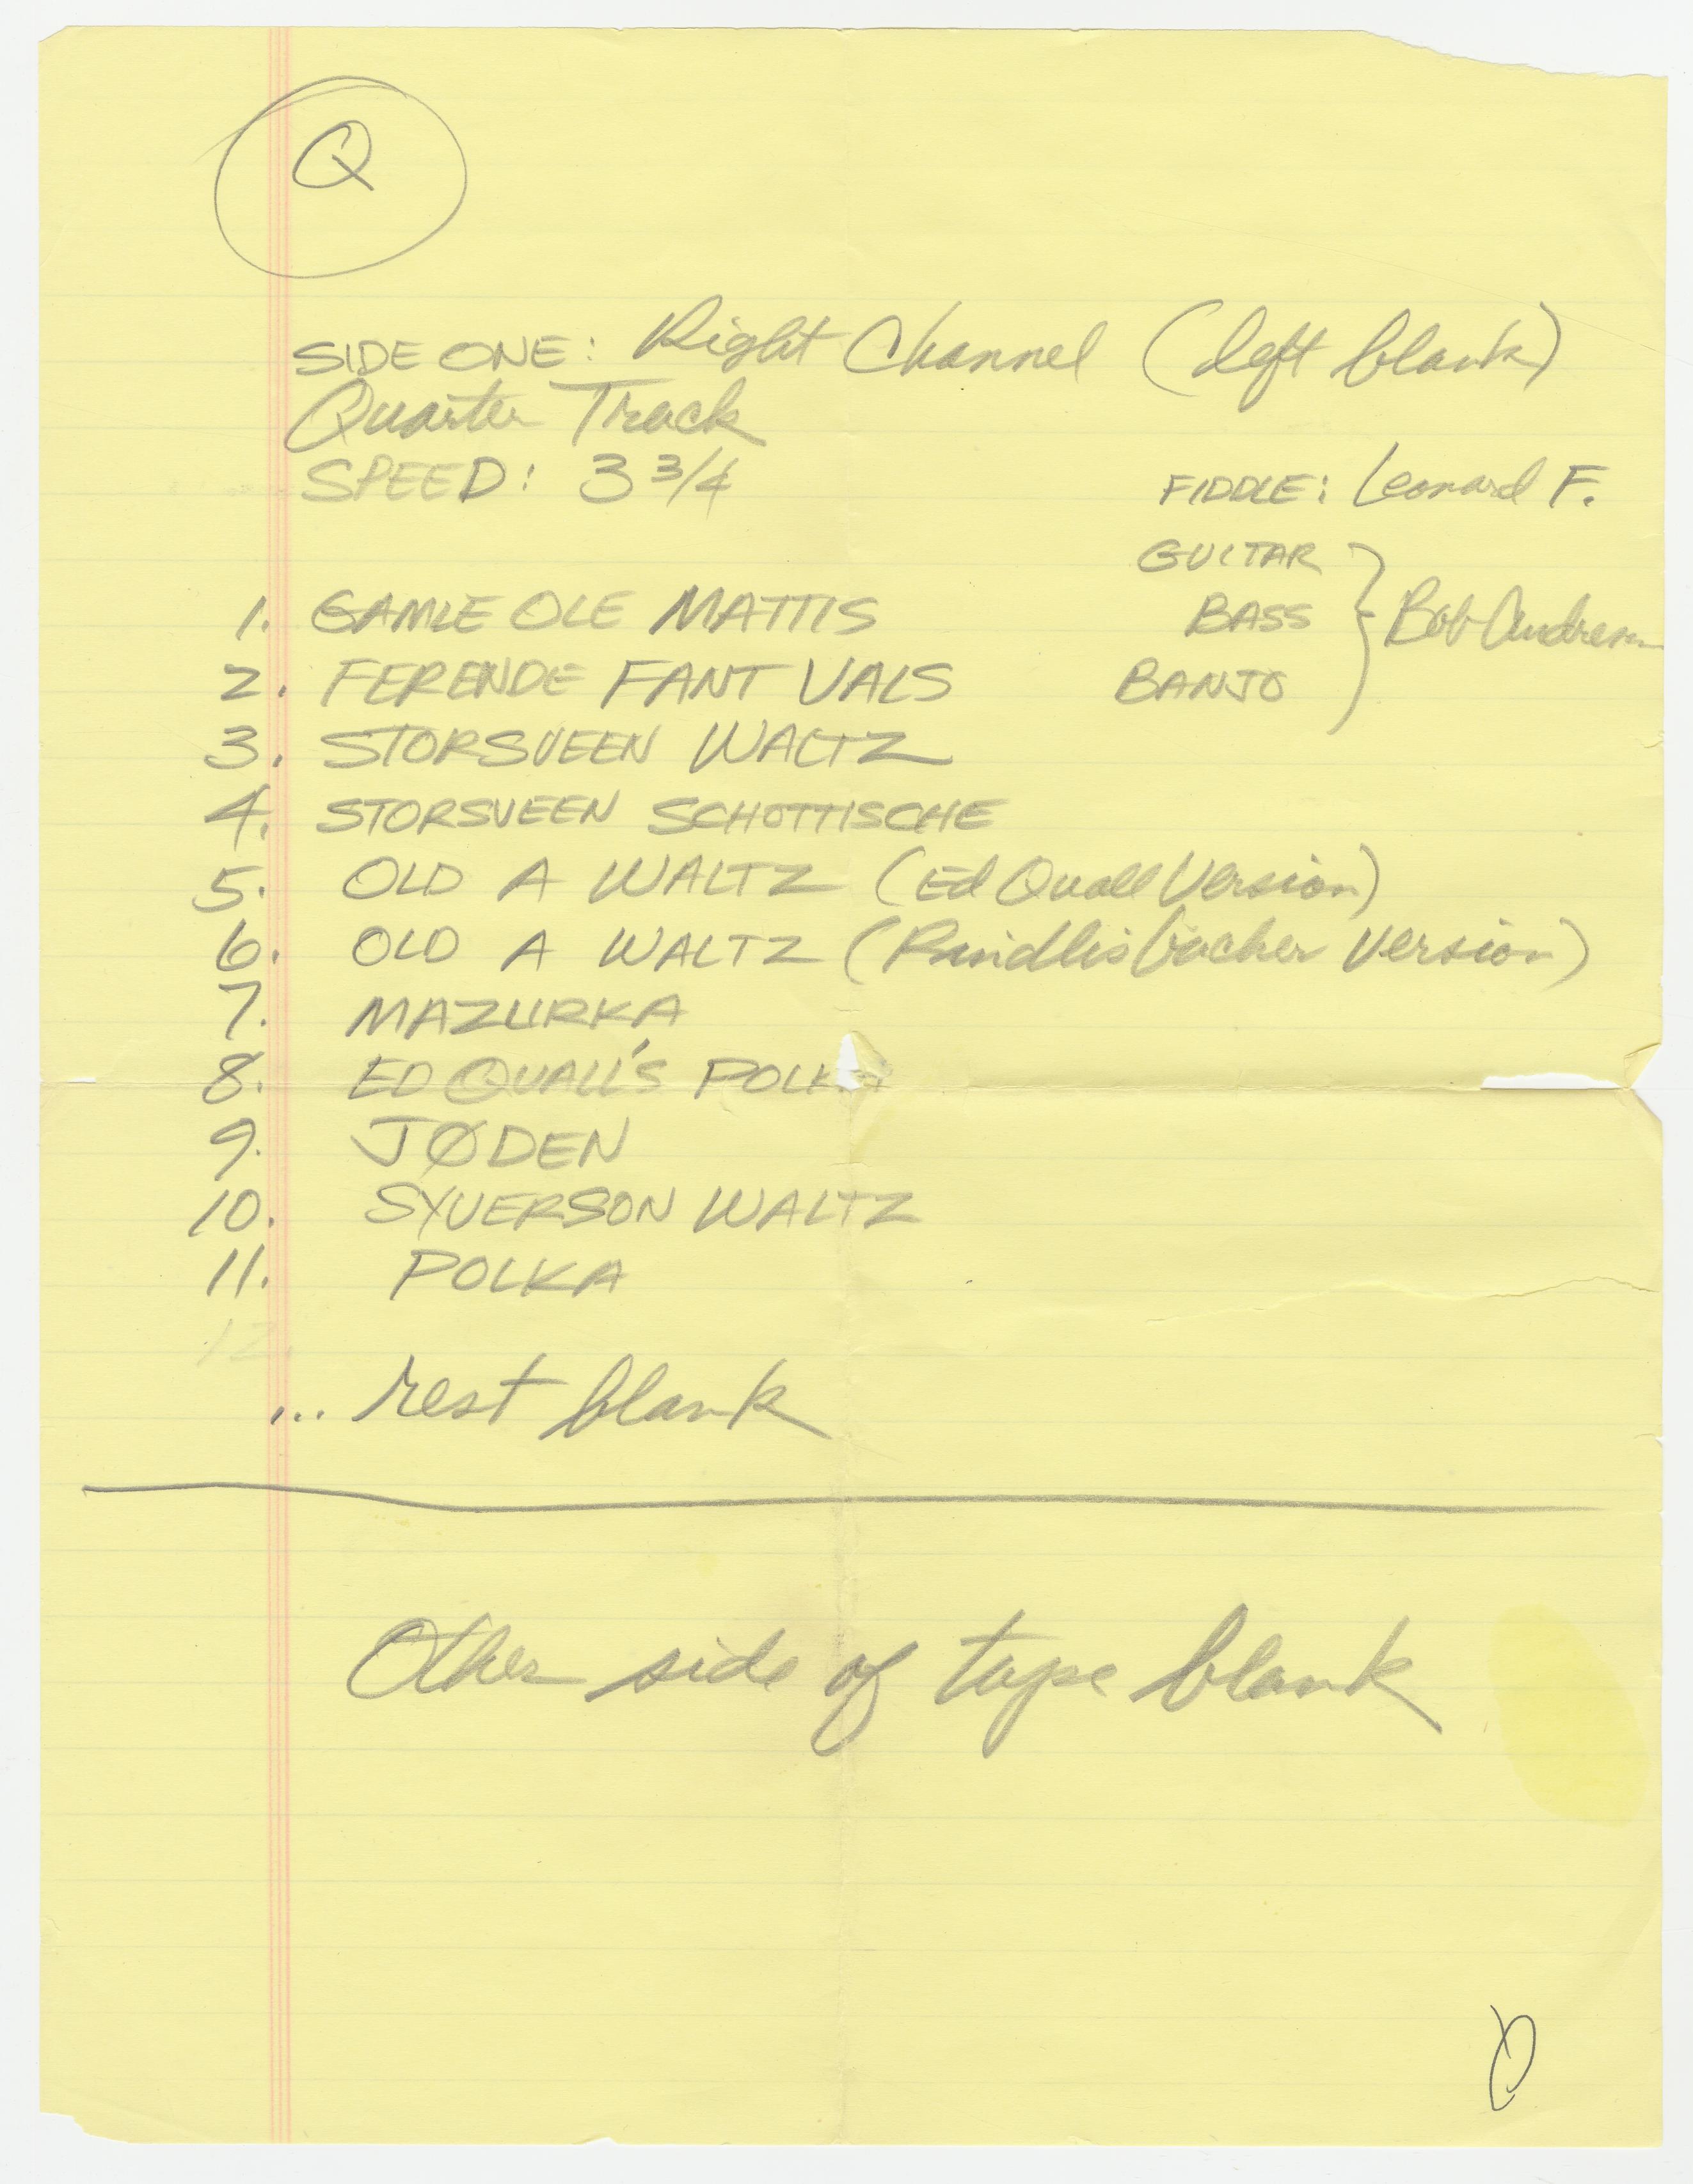 Q
SIDE ONE: Right Channel (left blank)
Quarter Track
SPEED: 3 3/4
FIDDLE: Leonard F.
GUITAR
BASS } Bob Andresen
BANJO
1. GAMLE OLE MATTIS
2. FERENDE FANT VALS
3. STORSVEEN WALTZ
4. STORSVEEN SCHOTTISCHE
5. OLD A WALTZ (Ed Quall Version)
6. OLD A WALTZ (Rindlisbacher Version)
7. MAZURKA
8. ED QUALL'S POLKA
9. JØDEN
10. SYVERSON WALTZ
11. POLKA
12.
... rest blank
Other side of tape blank